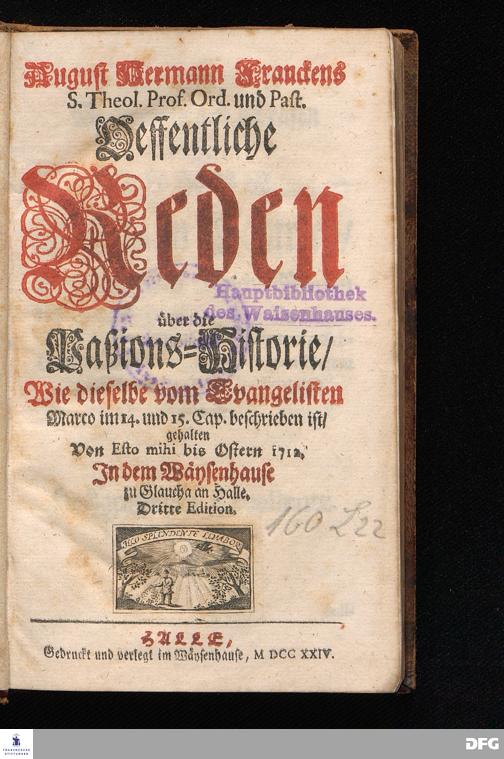 August Hermann Franckens
S. Theol. Prof. Ord. und Past.
Oeffentliche
Reden
Hauptbibliothek
des Waisenhauses.
über die
Paßions-Historie/
Wie dieselbe vom Evangelisten
Marco im 14. und 15. Cap. beschrieben ist/
gehalten
Von Esto mihi bis Ostern 1712,
In dem Wäysenhause
zu Glaucha an Halle.
Dritte Edition.
160 L 22
ILLO SPLENDENTE LEVABOR
HALLE,
Gedruckt und verlegt im Wäysenhause, M DCC XXIV.
FRANCKESCHE
STIFTUNGEN
DFG